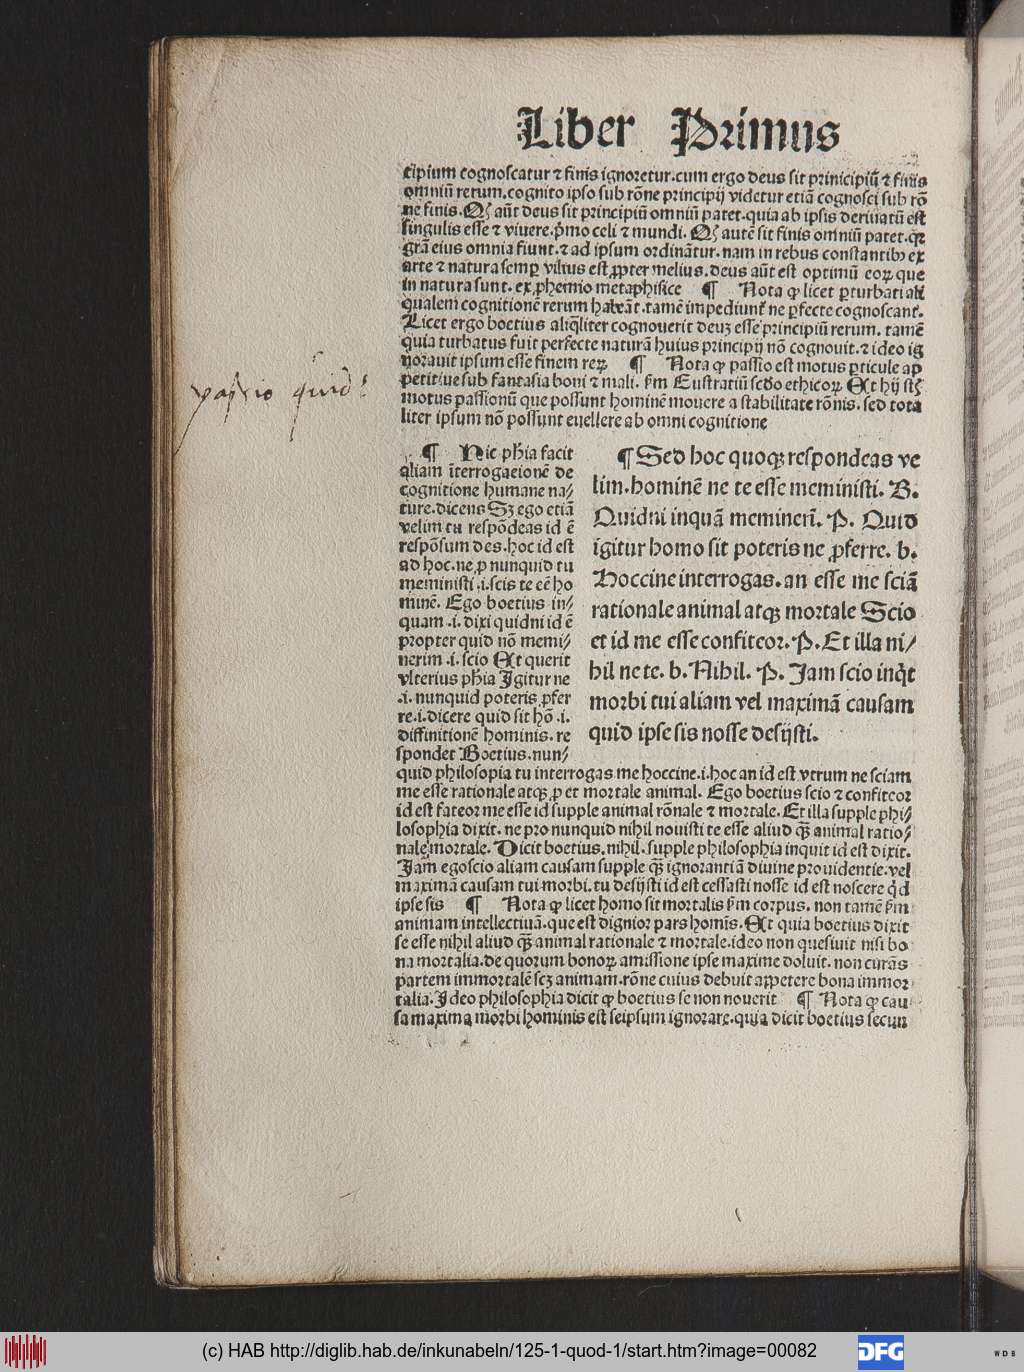 Liber Primus
cipium cognoscatur ⁊ finis ignoretur. cum ergo deus sit prinicipiũ ⁊ finis
omniũ rerum. cognito ipso sub rõne principij videtur etiã cognosci sub rõ
ne finis. Qꝫ aũt deus sit principiũ omniũ patet. quia ab ipsis deriuatũ est
singulis esse ⁊ viuere. p̃mo celi ⁊ mundi. Qꝫ autẽ sit finis omniũ patet. qꝛ
grã eius omnia fiunt. ⁊ ad ipsum ordinãtur. nam in rebus constantibꝰ ex
arte ⁊ natura semꝑ vilius est ꝓpter melius. deus aũt est optimũ eoꝝ que
in natura sunt. ex ꝓhemio metaphisice ¶ Nota ꝙ licet ꝑturbati ali
qualem cognitionẽ rerum habeãt. tamẽ impediunt᷑ ne ꝑfecte cognoscant᷑.
Licet ergo boetius aliq̃liter cognouerit deuꝫ esse principiũ rerum. tamẽ
quia turbatus fuit perfecte naturã huius principij nõ cognouit. ⁊ ideo ig
norauit ipsum esse finem reꝝ ¶ Nota ꝙ passio est motus ꝑticule ap
petitiue sub fantasia boni ⁊ mali. ẜm Eustratiũ scd̃o ethicoꝝ Et hij st̃
motus passionũ que possunt hominẽ mouere a stabilitate rõnis. sed tota
liter ipsum nõ possunt euellere ab omni cognitione
passio quid?
¶ Hic ph̃ia facit
aliam ĩterrogacionẽ de
cognitione humane na⸗
ture. dicens Sꝫ ego etiã
velim tu respõdeas id ẽ
respõsum des. hoc id est
ad hoc. ne ꝓ nunquid tu
meministi .i. scis te eẽ ho
minẽ. Ego boetius in⸗
quam .i. dixi quidni id ẽ
propter quid nõ memi⸗
nerim .i. scio Et querit
vlterius ph̃ia Igitur ne
.i. nunquid poteris ꝓfer
re .i. dicere quid sit hõ .i.
diffinitionẽ hominis. re
spondet Boetius. nun⸗
¶ Sed hoc quoqꝫ respondeas ve
lim. hominẽ ne te esse meministi. B.
Quidni inquã meminerĩ. P. Quid
ĩgitur homo sit poteris ne ꝓferre. b.
Hoccine interrogas. an esse me sciã
rationale animal atqꝫ mortale Scio
et id me esse confiteor. P. Et illa ni⸗
hil ne te. b. Nihil. P. Jam scio inq̃t
morbi tui aliam vel maximã causam
quid ipse sis nosse desijsti.
quid philosopia tu interrogas me hoccine .i. hoc an id est vtrum ne sciam
me esse rationale atqꝫ ꝓ et mortale animal. Ego boetius scio ⁊ confiteor
id est fateor me esse id supple animal rõnale ⁊ mortale. Et illa supple phi⸗
losophia dixit. ne pro nunquid nihil nouisti te esse aliud q̃ꝫ animal ratio⸗
nale mortale. Dicit boetius. nihil. supple philosophia inquit id est dixit.
Jam ego scio aliam causam supple q̃ꝫ ignorantiã diuine prouidentie. vel
maximã causam tui morbi. tu desijsti id est cessasti nosse id est noscere q̃d
ipse sis ¶ Nota ꝙ licet homo sit mortalis ẜm corpus. non tamẽ ẜm
animam intellectiuã. que est dignior pars homĩs. Et quia boetius dixit
se esse nihil aliud q̃ꝫ animal rationale ⁊ mortale. ideo non quesiuit nisi bo
na mortalia. de quorum bonoꝝ amissione ipse maxime doluit. non curãs
partem immortalẽ scꝫ animam. rõne cuius debuit appetere bona immor
talia. Ideo philosophia dicit ꝙ boetius se non nouerit ¶ Nota ꝙ cau
sa maxima morbi hominis est seipsum ignorare. quia dicit boetius secun
(c) HAB http://diglib.hab.de/inkunabeln/125-1-quod-1/start.htm?image=00082
DFG
WDB